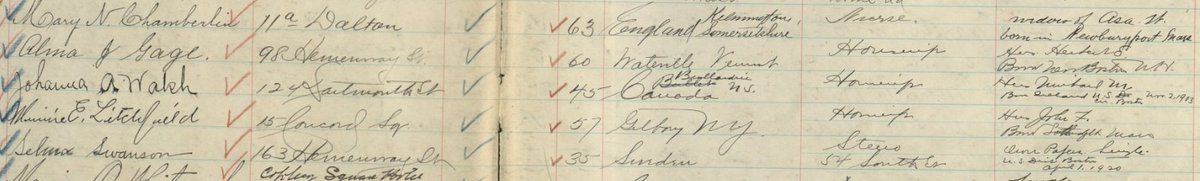 Mary N. Chamberlin 11a Dalton 63 England Somersetshire Nurse widow of Asa H.
born in Newburyport Mass
Alma J Gage. 98 Hemenway St 60 Waterville Vermont Housewife Hus Herbert E
Born New Boston N.H.
Johanna A. Walsh 124 Dartmouth St 45 Canada N.S. Housewife Hus
Born Ireland U.S. Boston Nov. 2, 1903
Minnie E. Litchfield 15 Concord Sq. 57 N.Y. Housewife Hus John F.
Born Mass
Selma Swanson 163 Hemenway St 35 Sweden Steno Own Papers Single
54 South St U.S. Dist Boston
April 1, 1920
Copley Square Hotel